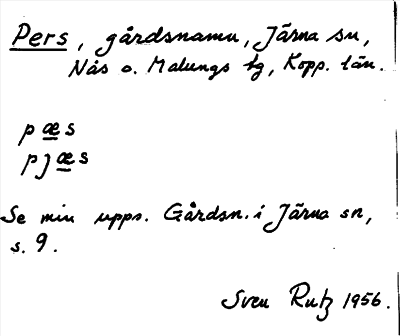 Pers, gårdsnamn, Järna sn,
Nås o. Malungs tg, Kopp. län.
pæs
pjæs
Se min upps. Gårdsn. i Järna sn,
s. 9.
Sven Rutz 1956.